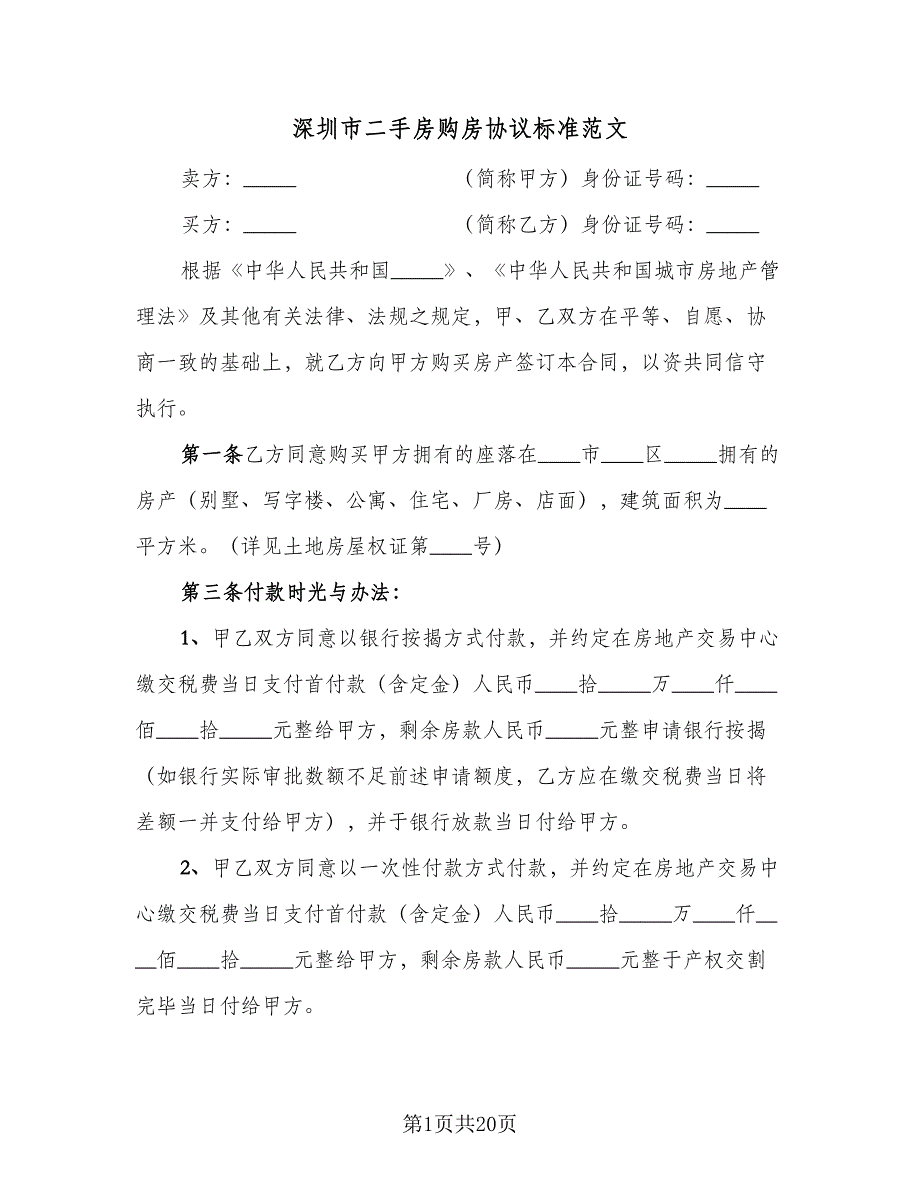 深圳市二手房购房协议标准范文
卖方：_____ （简称甲方）身份证号码：_____
买方：_____ （简称乙方）身份证号码：_____
根据《中华人民共和国_____》、《中华人民共和国城市房地产管
理法》及其他有关法律、法规之规定，甲、乙双方在平等、自愿、协
商一致的基础上，就乙方向甲方购买房产签订本合同，以资共同信守
执行。
第一条乙方同意购买甲方拥有的座落在____市____区_____拥有的
房产（别墅、写字楼、公寓、住宅、厂房、店面），建筑面积为____
平方米。（详见土地房屋权证第____号）
第三条付款时光与办法：
1、甲乙双方同意以银行按揭方式付款，并约定在房地产交易中心
缴交税费当日支付首付款（含定金）人民币____拾_____万____仟____
佰____拾_____元整给甲方，剩余房款人民币_____元整申请银行按揭
（如银行实际审批数额不足前述申请额度，乙方应在缴交税费当日将
差额一并支付给甲方），并于银行放款当日付给甲方。
2、甲乙双方同意以一次性付款方式付款，并约定在房地产交易中
心缴交税费当日支付首付款（含定金）人民币____拾_____万____仟__
__佰____拾_____元整给甲方，剩余房款人民币_____元整于产权交割
完毕当日付给甲方。
第1页共20页